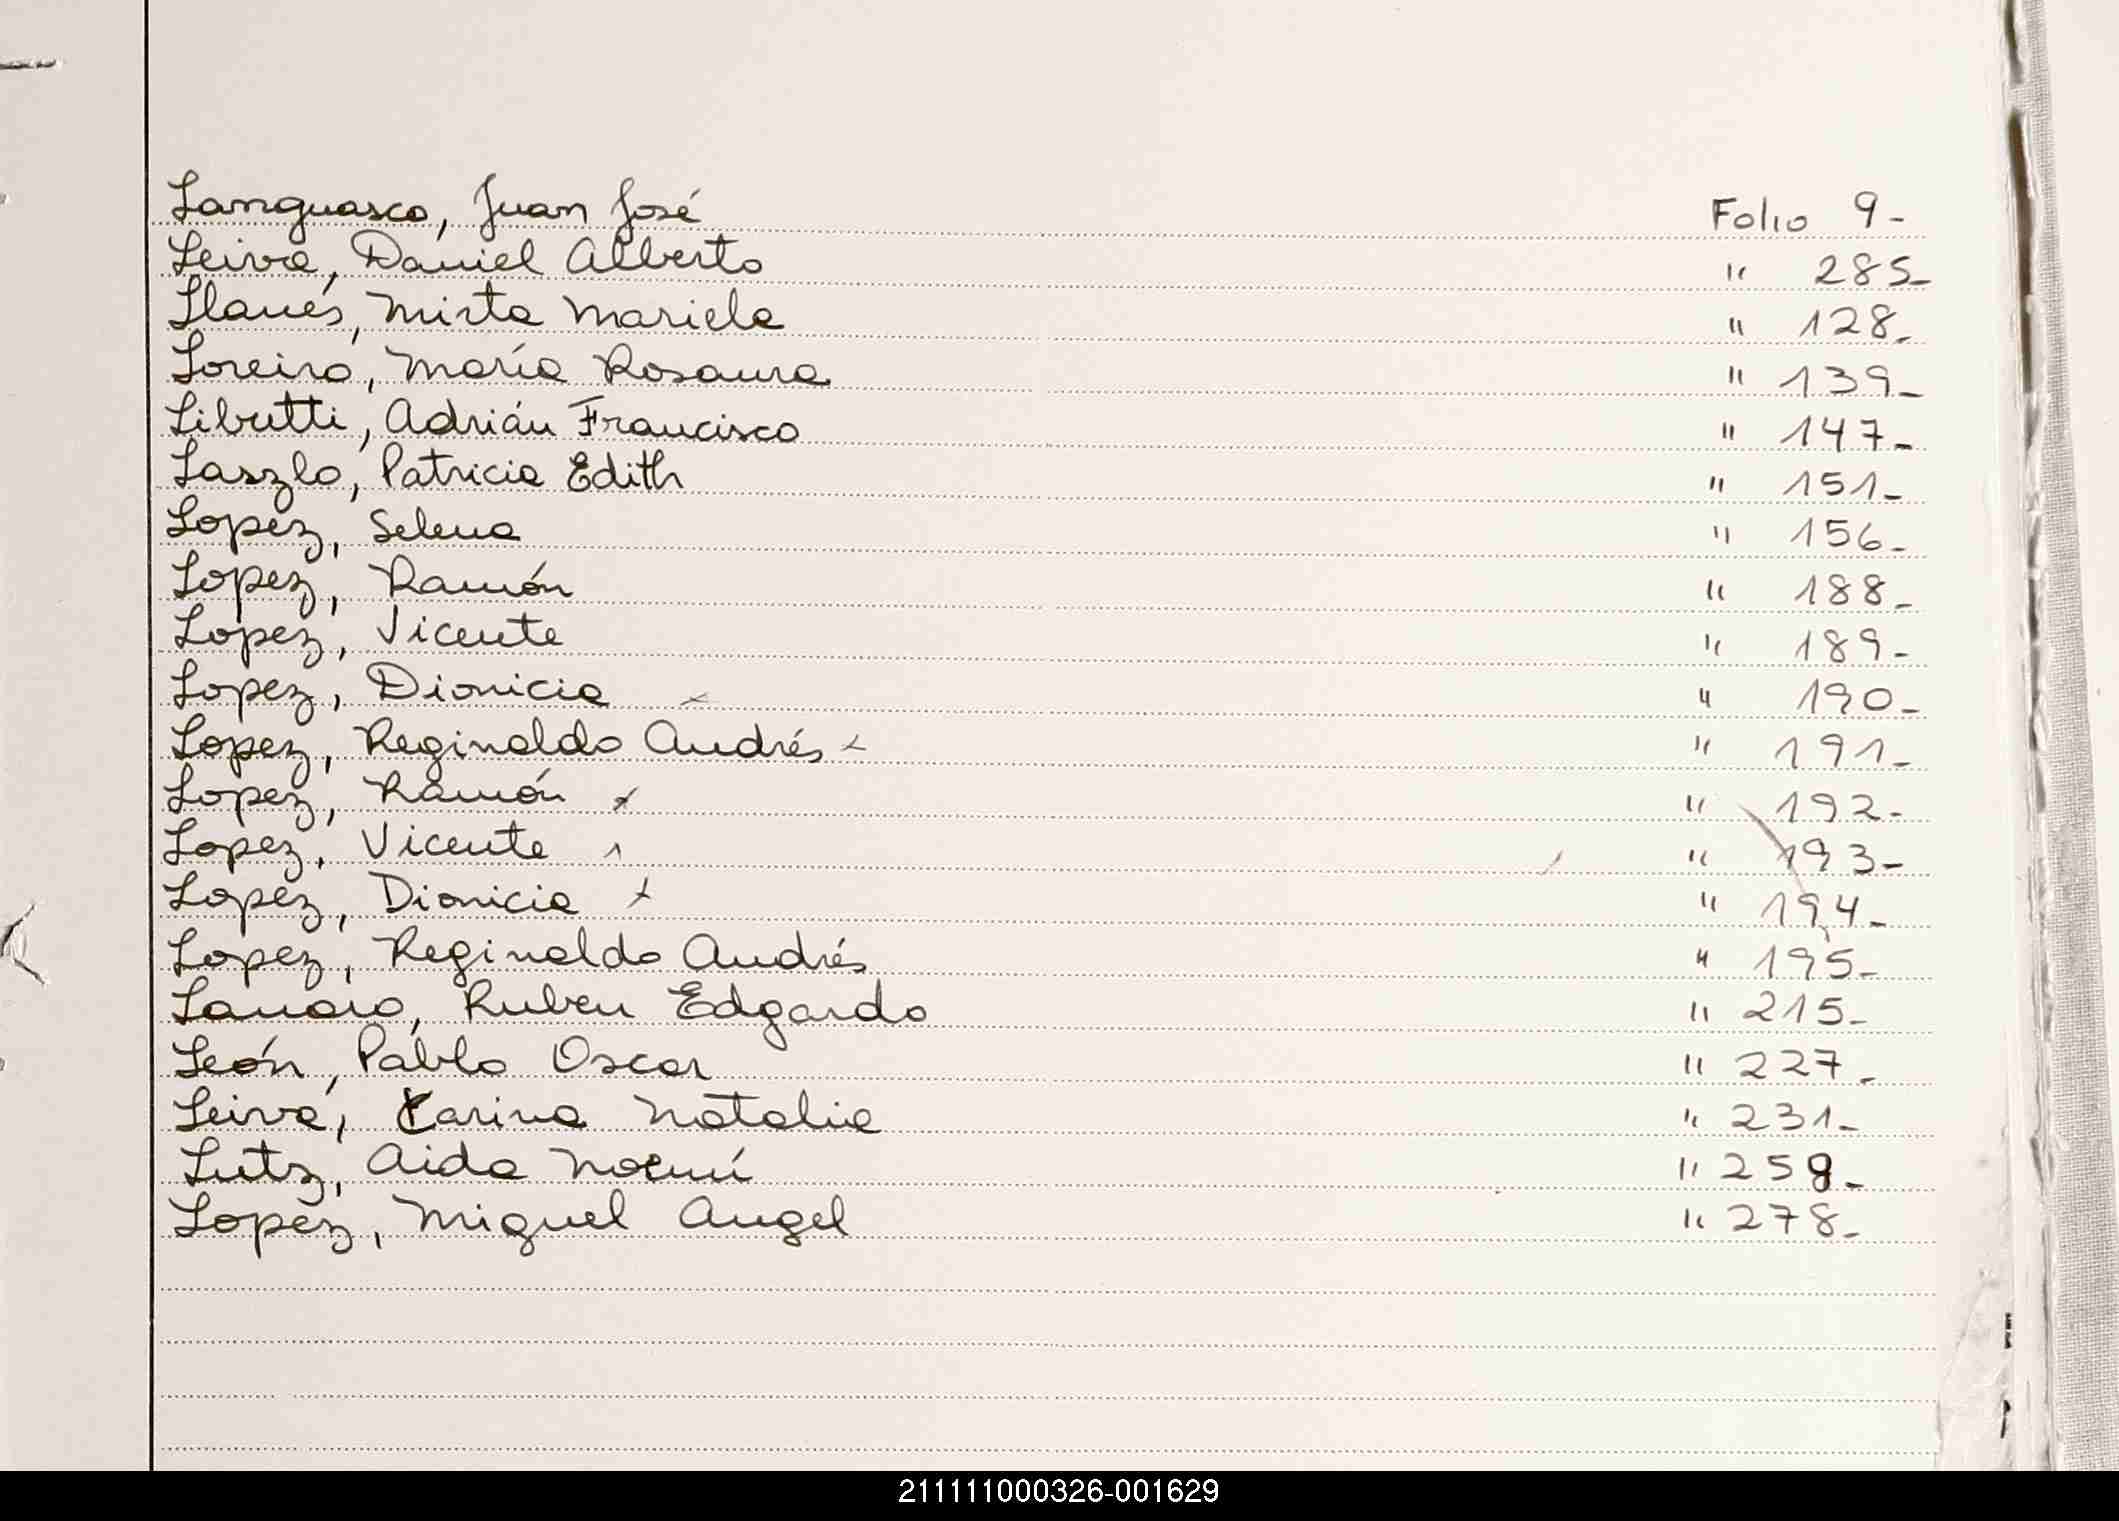 Languasco, Juan José Folio 9-
Leiva, Daniel Alberto " 285-
Llanes, Mirta Mariela " 128-
Loreiro, María Rosaura " 139-
Librutti, Adrián Francisco " 147-
Laszlo, Patricia Edith " 151-
Lopez, Selena " 156-
Lopez, Ramón " 188-
Lopez, Vicente " 189-
Lopez, Dionicia " 190-
Lopez, Reginaldo Andrés " 191-
Lopez, Ramón " 192-
Lopez, Vicente " 193-
Lopez, Dionicia " 194-
Lopez, Reginaldo Andrés " 195-
Ruben Edgardo " 215-
León, Pablo Oscar " 227-
Leiva, Karina Natalia " 231-
Lutz, Aida Noemí " 259-
Lopez, Miguel Angel " 278-
211111000326-001629